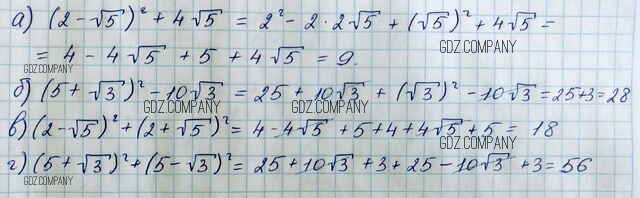 а) (2 - √5)² + 4√5 = 2² - 2 · 2√5 + (√5)² + 4√5 =
GDZ.COMPANY
= 4 - 4√5 + 5 + 4√5 = 9.
GDZ.COMPANY
GDZ.COMPANY
б) (5 + √3)² - 10√3 = 25 + 10√3 + (√3)² - 10√3 = 25+3 = 28
GDZ.COMPANY GDZ.COMPANY
в) (2 - √5)² + (2 + √5)² = 4 - 4√5 + 5 + 4 + 4√5 + 5 = 18
GDZ.COMPANY
г) (5 + √3)² + (5 - √3)² = 25 + 10√3 + 3 + 25 - 10√3 + 3 = 56
GDZ.COMPANY